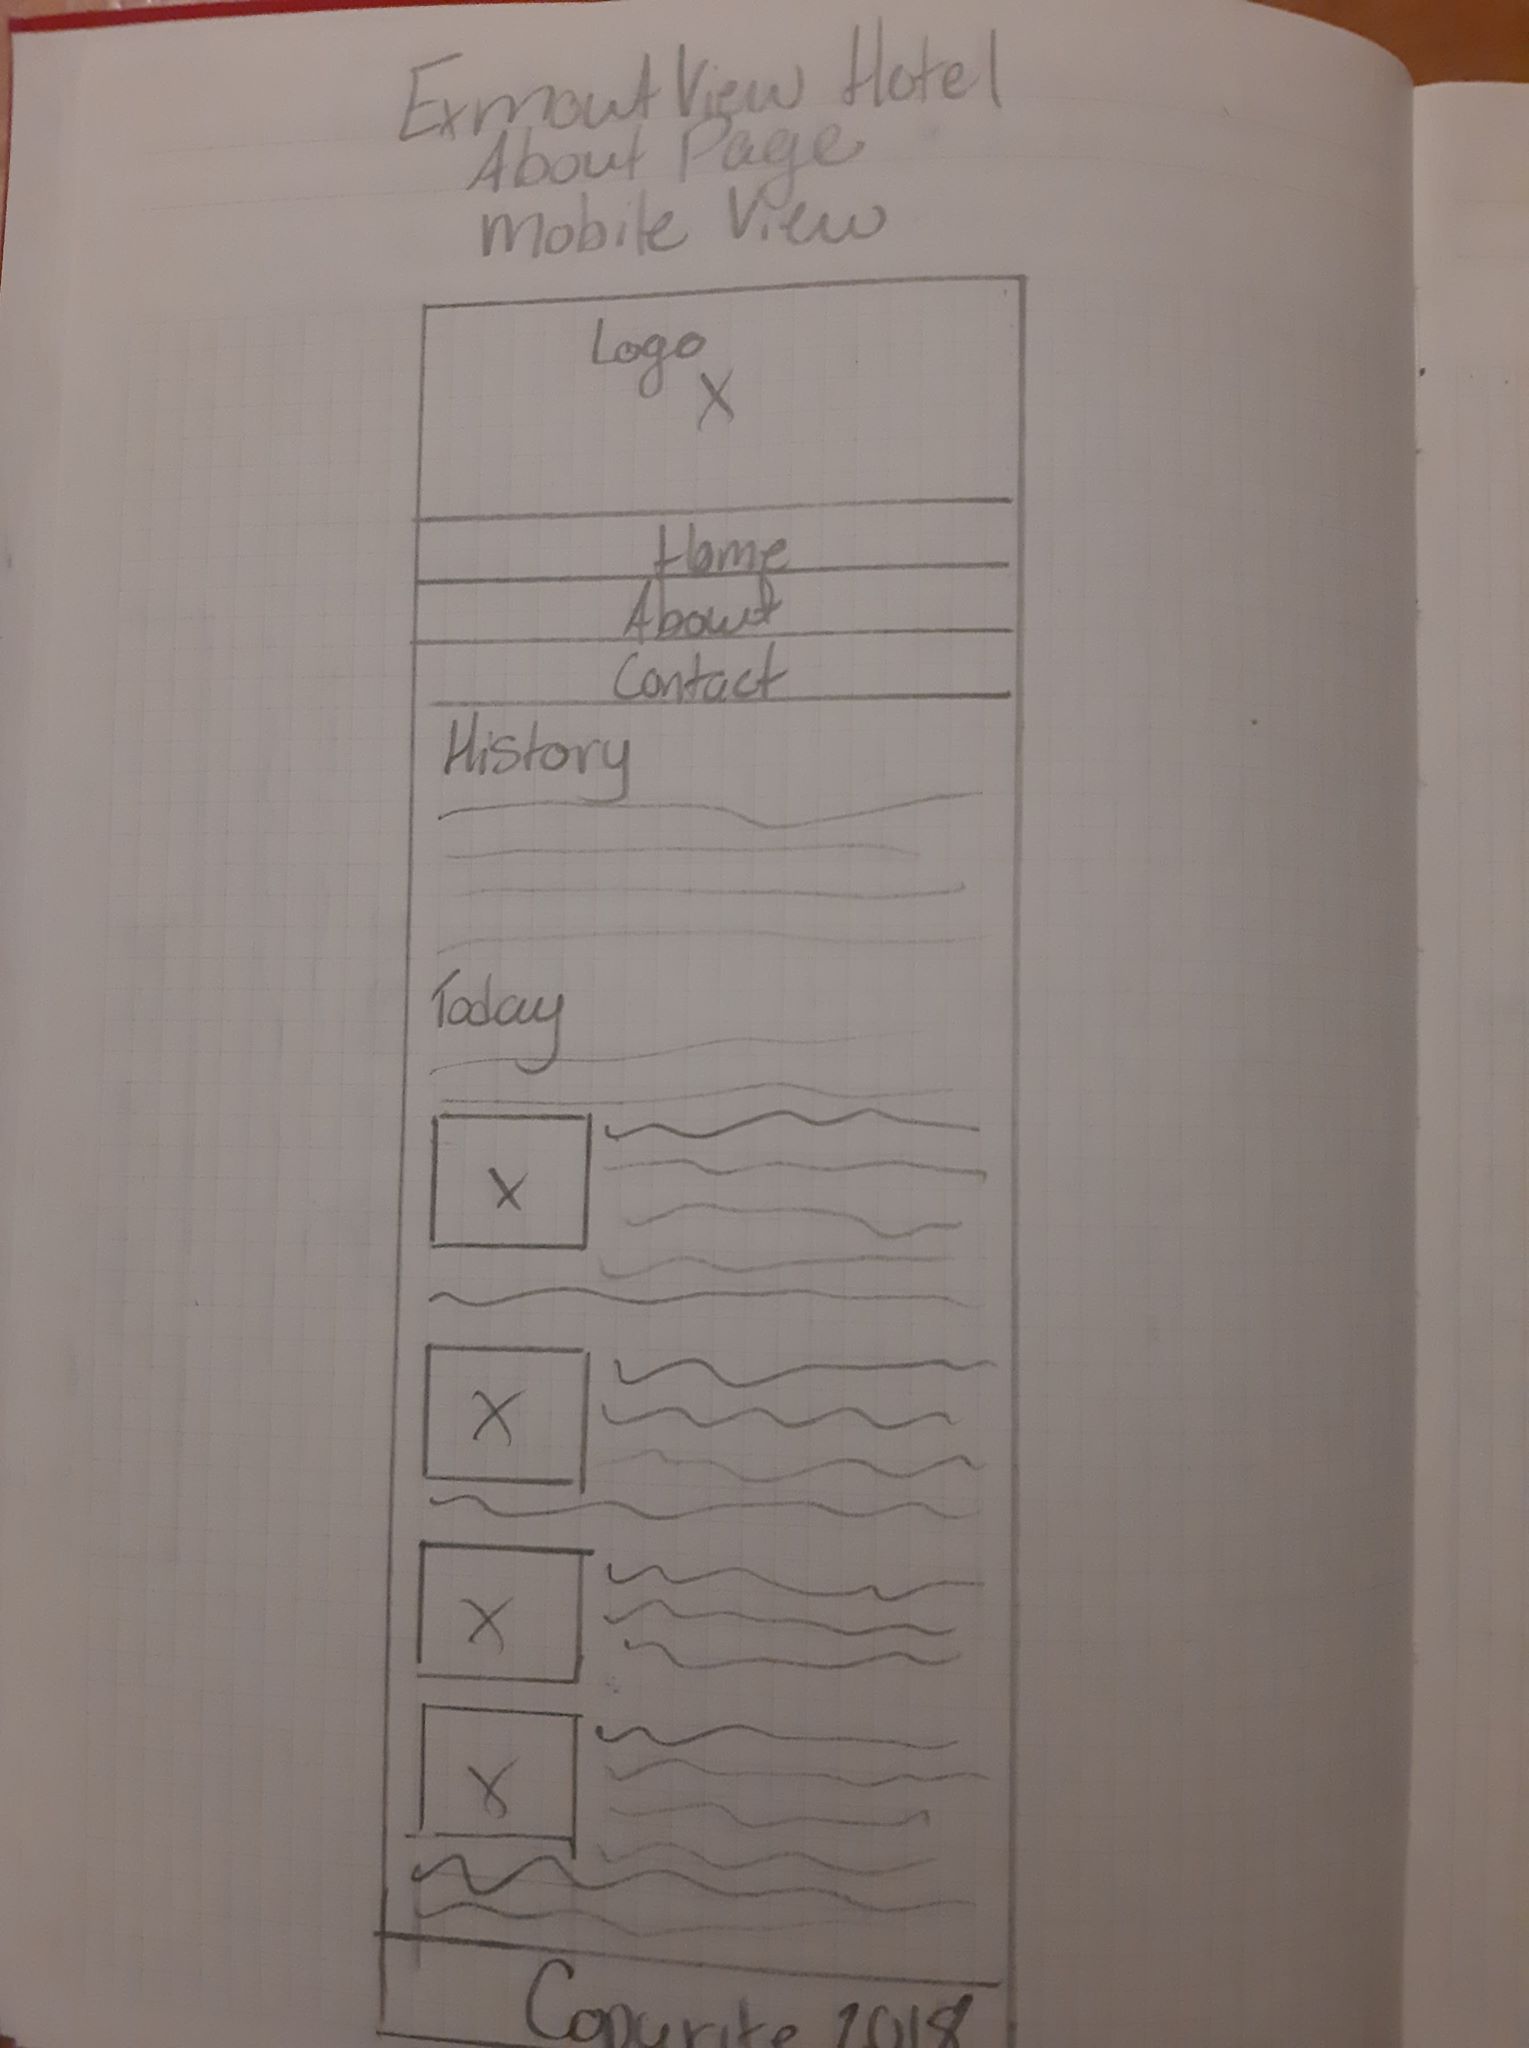 Exmout View Hotel
About Page
Mobile View
Logo
X
Home
About
Contact
History
Today
X
X
X
X
Copyrite 2018